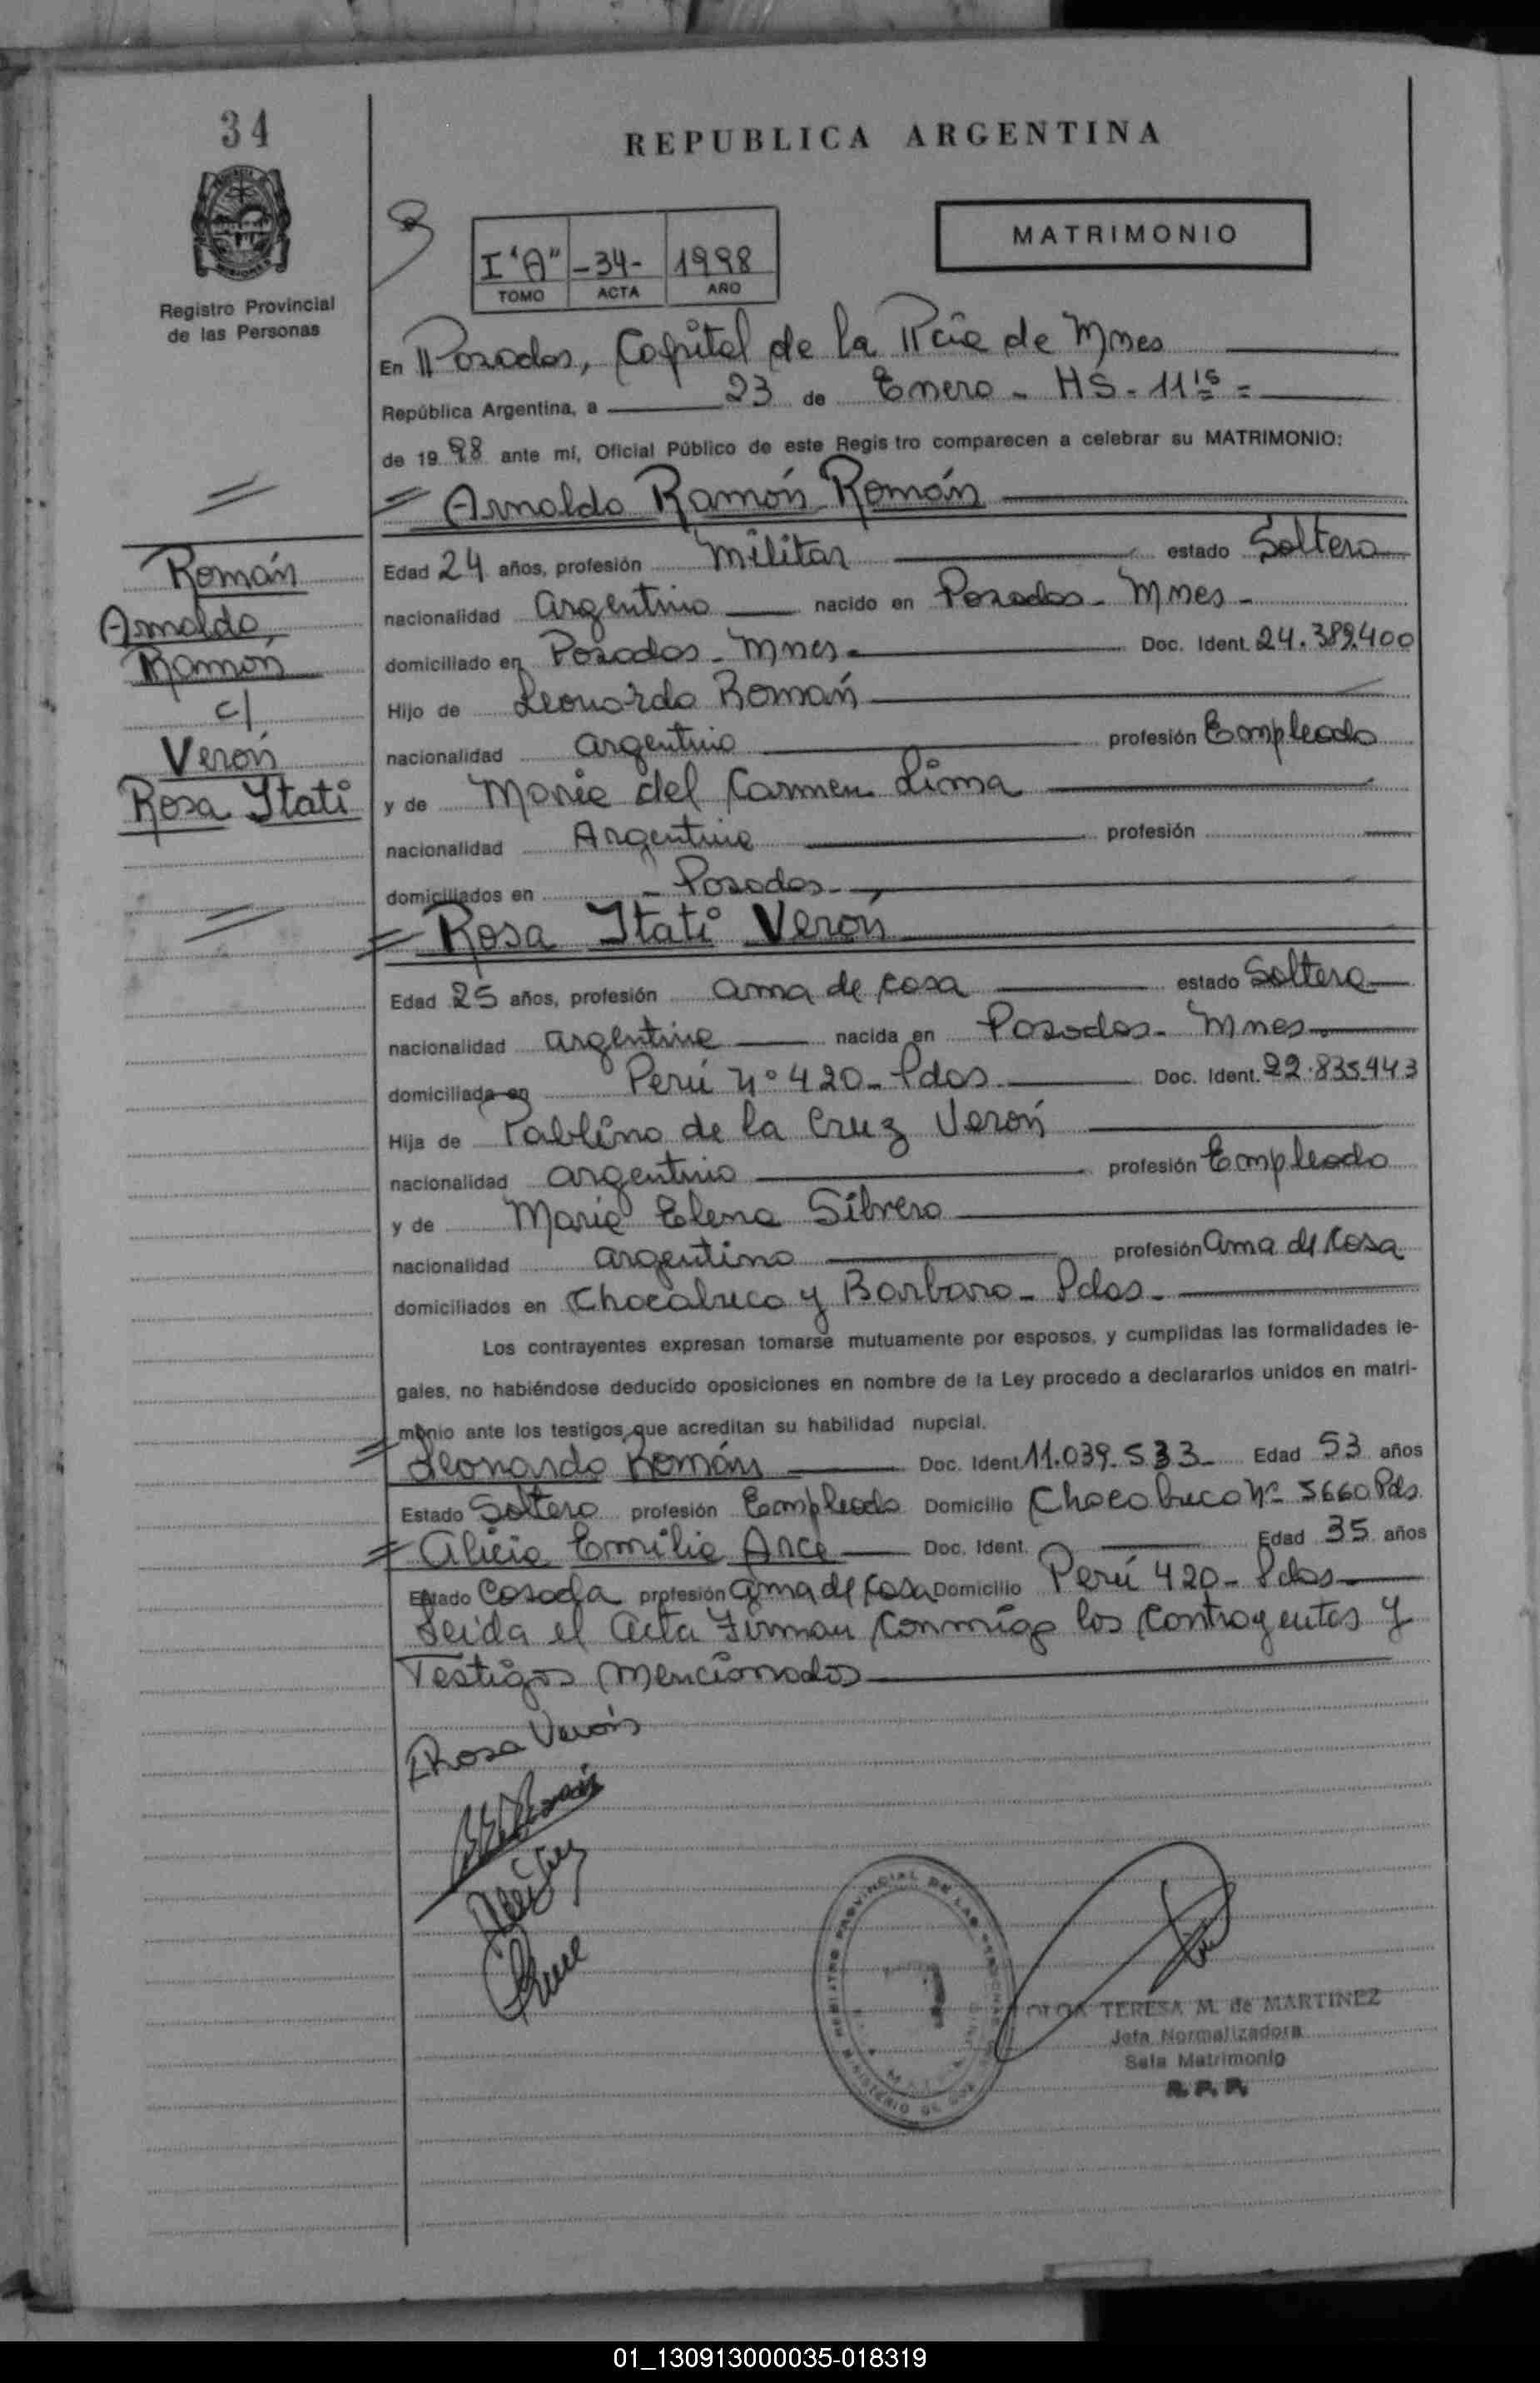 34
REPUBLICA ARGENTINA
MATRIMONIO
I "A" -34- 1998
TOMO ACTA AÑO
Registro Provincial
de las Personas
En Posadas, Capital de la Pcia de Mnes
República Argentina, a 23 de Enero - HS - 11 15 =
de 19 98 ante mí, Oficial Público de este Regis tro comparecen a celebrar su MATRIMONIO:
Arnaldo Ramón Román
Edad 24 años, profesión Militar estado Soltero
nacionalidad argentino nacido en Posadas - Mnes -
domiciliado en Posadas - Mnes - Doc. Ident. 24.389.400
Hijo de Leonardo Román
nacionalidad argentino profesión Empleado
y de Maria del Carmen Lima
nacionalidad Argentina profesión
domiciliados en - Posadas -
Román
Arnaldo,
Ramón
c/
Verón
Rosa Itati
Rosa Itati Verón
Edad 25 años, profesión ama de casa estado Soltera
nacionalidad argentina nacida en Posadas - Mnes -
domiciliada en Perú Nº 420 - Pdas Doc. Ident. 22.835.443
Hija de Pablino de la Cruz Verón
nacionalidad argentino profesión Empleado
y de Maria Elena Silvero
nacionalidad argentina profesión ama de casa
domiciliados en Chacabuco y Barbaro - Pdas -
Los contrayentes expresan tomarse mutuamente por esposos, y cumplidas las formalidades le-
gales, no habiéndose deducido oposiciones en nombre de la Ley procedo a declararlos unidos en matri-
monio ante los testigos que acreditan su habilidad nupcial.
Leonardo Román Doc. Ident 11.039.533 - Edad 53 años
Estado Soltero profesión Empleado Domicilio Chacabuco Nº 5660 Pds
Alicia Emilia Arce Doc. Ident. Edad 35 años
Estado Casada profesión ama de casa Domicilio Perú 420 - Pdas
Leida el acta Firman conmigo los contrayentes y
Testigos mencionados
Rosa Verón
OLGA TERESA M. de MARTINEZ
Jefa Normalizadora
Sala Matrimonio
R. P. P.
01_130913000035-018319